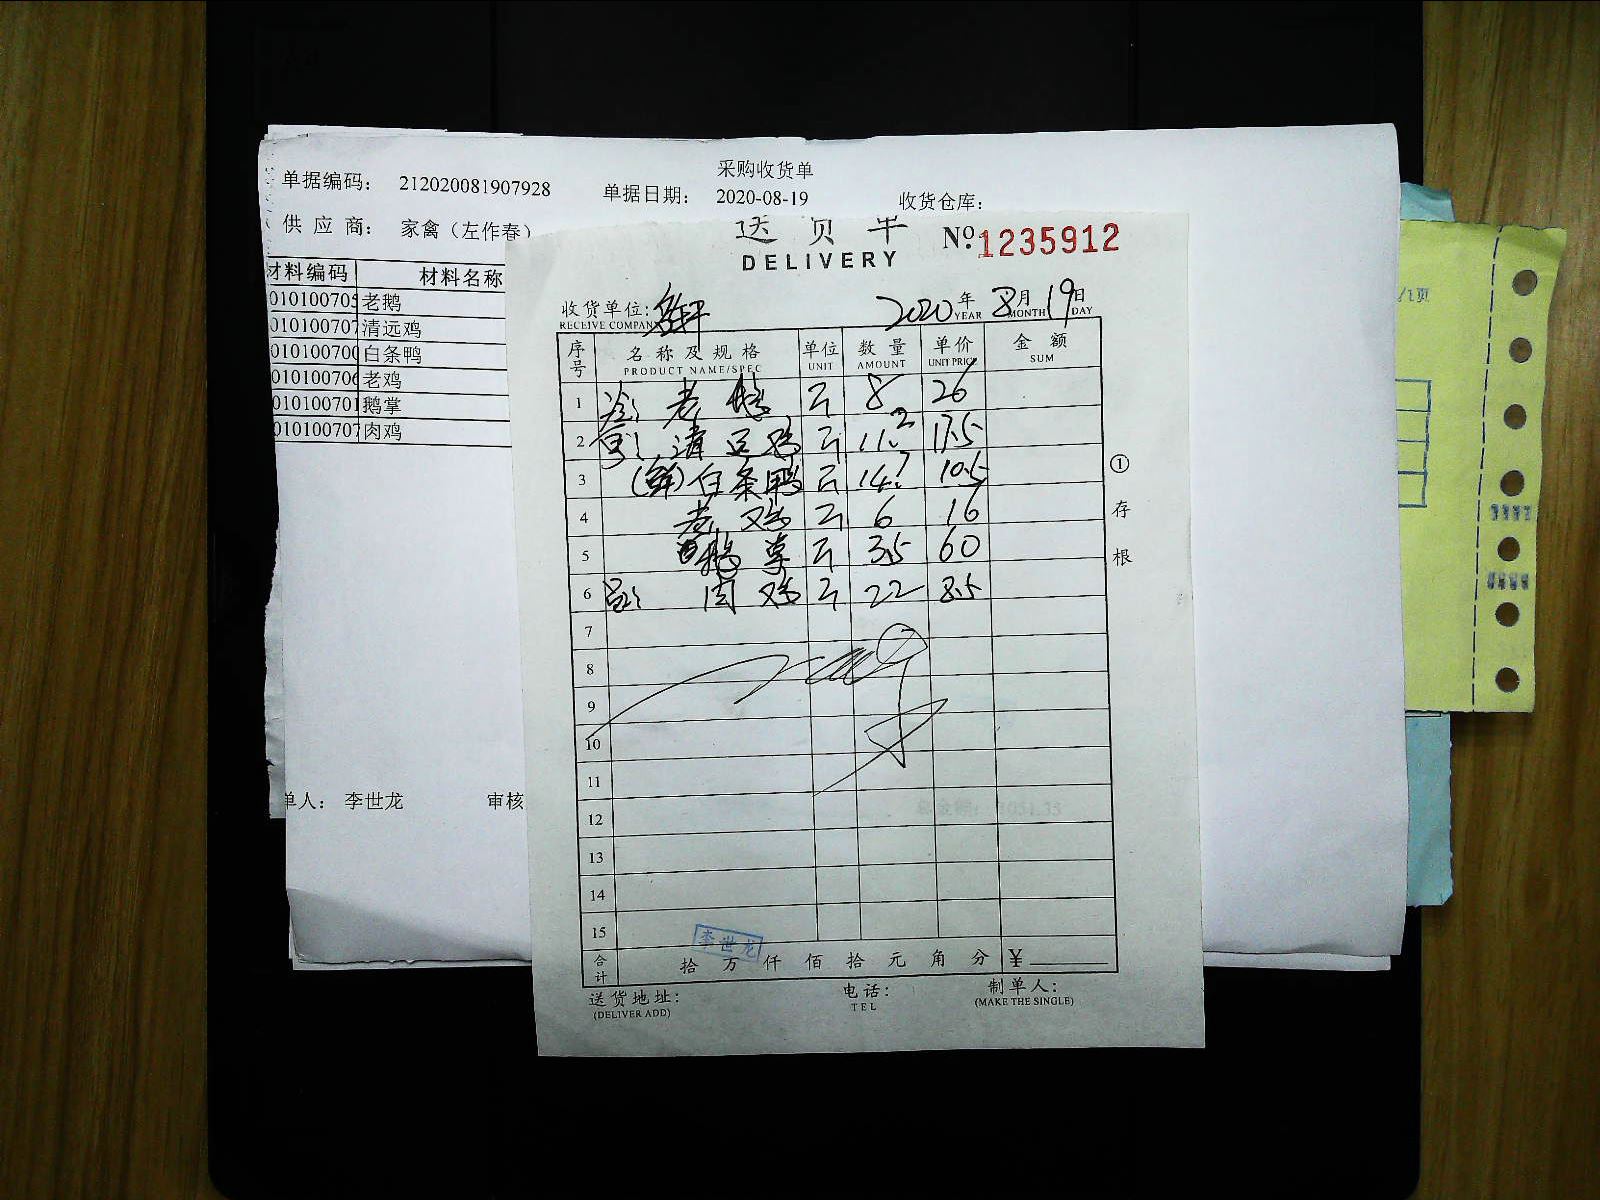 采购收货单
单据编码： 212020081907928 单据日期： 2020-08-19 收货仓库：
供 应 商： 家禽（左作春）
材料编码 材料名称
010100705 老鹅
010100707 清远鸡
010100700 白条鸭
010100706 老鸡
010100701 鹅掌
010100707 肉鸡
单人： 李世龙 审核
送货单 №1235912
DELIVERY
收货单位： 2020年 8月 19日
RECEIVE COMPANY YEAR MONTH DAY
序号 名称及规格 单位 数量 单价 金额
PRODUCT NAME/SPEC UNIT AMOUNT UNIT PRICE SUM
1 老鹅 斤 8 26
2 清远鸡 斤 11.2 17.5
3 (鲜)白条鸭 斤 14.7 10.5
4 老鸡 斤 6 16
5 鹅掌 斤 3.5 60
6 肉鸡 斤 22 8.5
7
8
9
10
11
12
13
14
15
李世龙
合计 拾 万 仟 佰 拾 元 角 分 ¥
送货地址： 电话： 制单人：
(DELIVER ADD) TEL (MAKE THE SINGLE)
① 存根
/1页